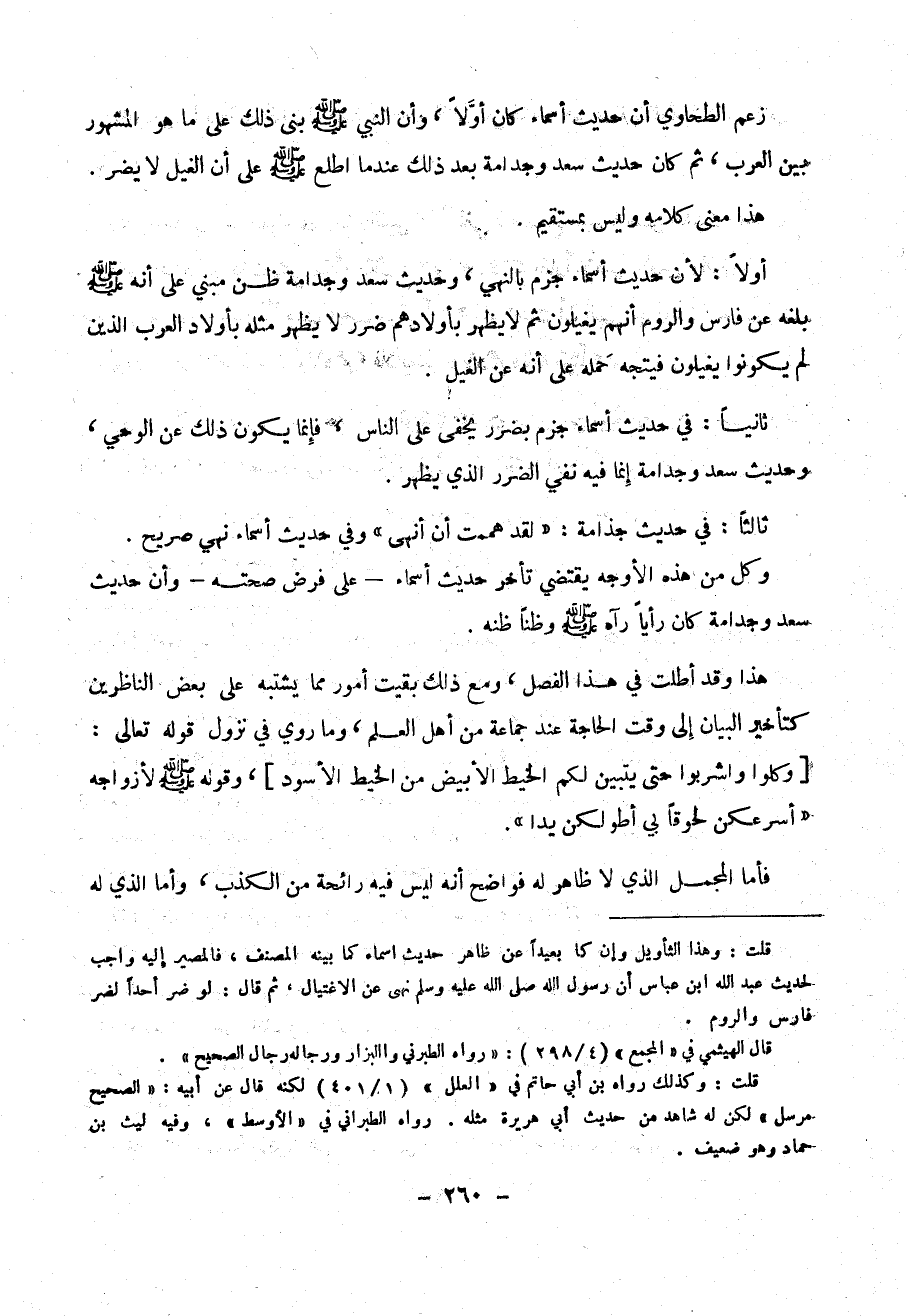 زعم الطحاوي أن حديث أسماء كان أوَّلاً ، وأن النبي ﷺ بنى ذلك على ما هو المشهور
بين العرب ، ثم كان حديث سعد وجدامة بعد ذلك عندما اطلع ﷺ على أن الغيل لا يضر .
هذا معنى كلامه وليس بمستقيم .
أولاً : لأن حديث أسماء جزم بالنهي ، وحديث سعد وجدامة ظن مبني على أنه ﷺ
بلغه عن فارس والروم أنهم يغيلون ثم لا يظهر بأولادهم ضرر لا يظهر مثله بأولاد العرب الذين
لم يكونوا يغيلون فيتجه حمله على أنه عن الغيل .
ثانياً : في حديث أسماء جزم بضرر يخفى على الناس ، فإنما يكون ذلك عن الوحي ،
وحديث سعد وجدامة إنما فيه نفي الضرر الذي يظهر .
ثالثاً : في حديث جذامة : « لقد هممت أن أنهى » وفي حديث أسماء نهي صريح .
وكل من هذه الأوجه يقتضي تأخر حديث أسماء – على فرض صحته – وأن حديث
سعد وجدامة كان رأياً رآه ﷺ وظناً ظنه .
هذا وقد أطلت في هذا الفصل ، ومع ذلك بقيت أمور مما يشتبه على بعض الناظرين
كتأخير البيان إلى وقت الحاجة عند جماعة من أهل العلم ، وما روي في نزول قوله تعالى :
[ وكلوا واشربوا حتى يتبين لكم الخيط الأبيض من الخيط الأسود ] ، وقوله ﷺ لأزواجه
« أسرعكن لحوقاً بي أطولكن يدا » .
فأما المجمل الذي لا ظاهر له فواضح أنه ليس فيه رائحة من الكذب ، وأما الذي له
قلت : وهذا التأويل وإن كا بعيداً عن ظاهر حديث اسماء كما بينه المصنف ، فالمصير إليه واجب
لحديث عبد الله ابن عباس أن رسول الله صلى الله عليه وسلم نهى عن الاغتيال ، ثم قال : لو ضر أحداً لضر
فارس والروم .
قال الهيثمي في « المجمع » (٢٩٨/٤) : « رواه الطبرني واالبزار ورجاله رجال الصحيح » .
قلت : وكذلك رواه بن أبي حاتم في « العلل » (٤٠١/١) لكنه قال عن أبيه : « الصحيح
مرسل » لكن له شاهد من حديث أبي هريرة مثله . رواه الطبراني في « الأوسط » ، وفيه ليث بن
حماد وهو ضعيف .
– ٢٦٠ –